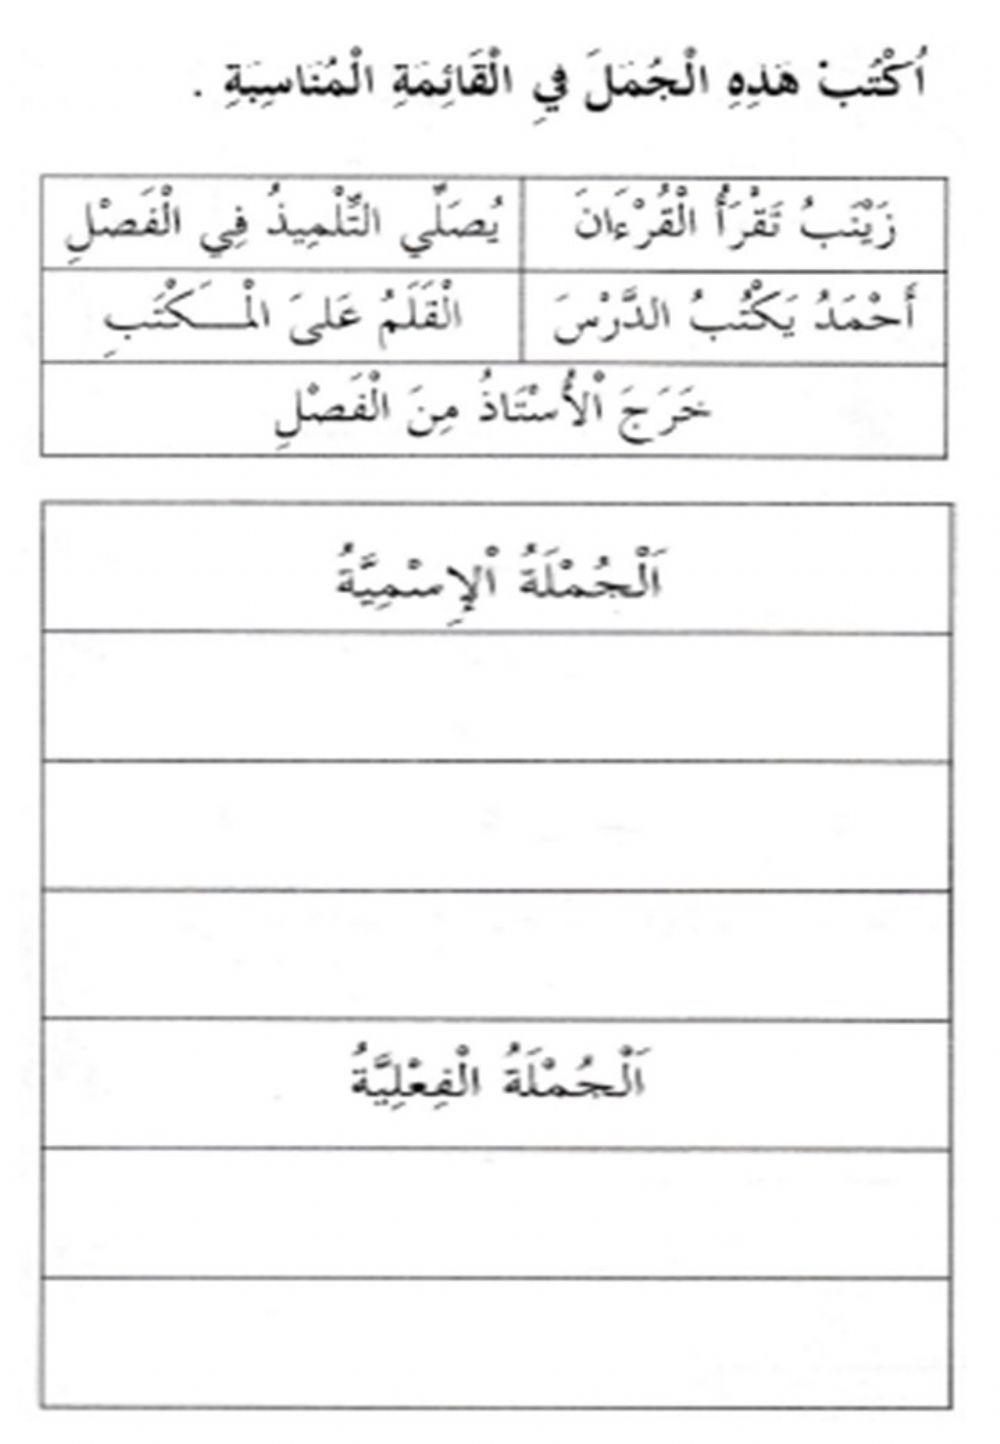 اُكْتُبْ هَذِهِ الْجُمَلَ فِي الْقَائِمَةِ الْمُنَاسِبَةِ .
زَيْنَبُ تَقْرَأُ الْقُرْءَانَ
يُصَلِّي التِّلْمِيذُ فِي الْفَصْلِ
أَحْمَدُ يَكْتُبُ الدَّرْسَ
الْقَلَمُ عَلىَ الْمَـــكْتَبِ
خَرَجَ الْأُسْتَاذُ مِنَ الْفَصْلِ
اَلْجُمْلَةُ الْإِسْمِيَّةُ
اَلْجُمْلَةُ الْفِعْلِيَّةُ